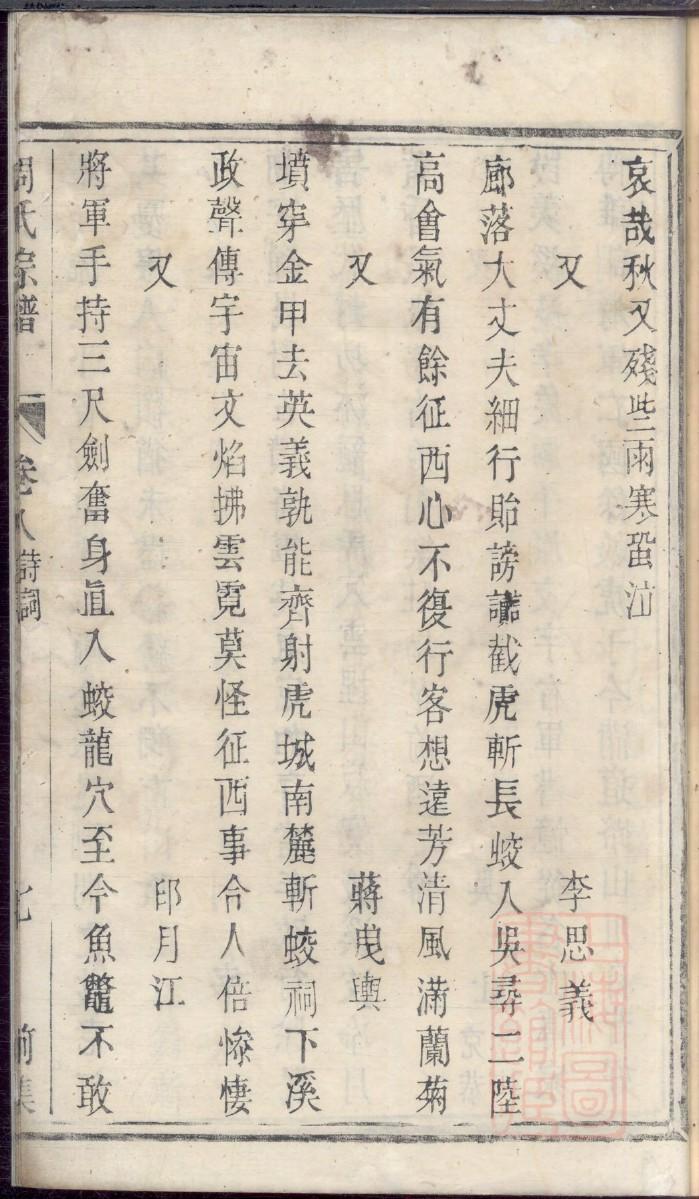 哀哉秋又殘些雨寒蛩泣
又 李思義
廊落大丈夫細行貽謗讟截虎斬長蛟入吳尋二陸
高會氣有餘征西心不復行客想遠芳清風滿蘭菊
又 蔣曳輿
墳穿金甲去英義孰能齊射虎城南麓斬蛟祠下溪
政聲傳宇宙文焰拂雲霓莫怪征西事令人倍慘悽
又 邱月江
將軍手持三尺劍奮身直入蛟龍穴至今魚鼈不敢
周氏宗譜 卷八 詩詞 七 前集